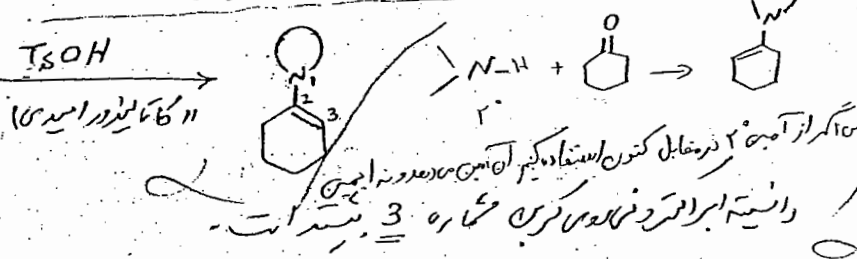 TsOH
(کاتالیزور اسیدی)
N 1
2
3
N-H + O → N
2°
اگر از آمین 2° در مقابل کتون استفاده کنیم آن آمین می‌دهد و نه ایمین
دانسیته ابر الکترونی روی کربن شماره 3 بیشتر است.